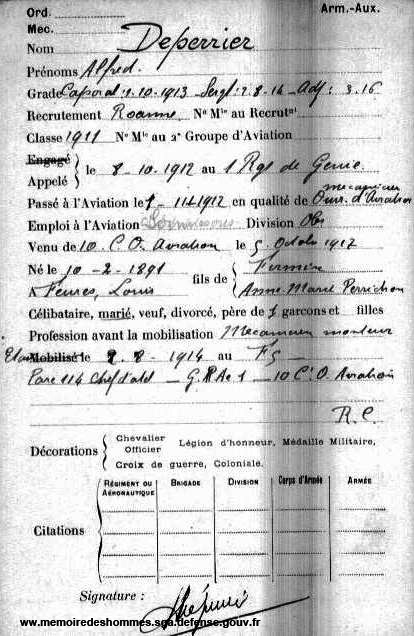 Ord. Arm.-Aux.
Mec.
Nom Deperrier
Prénoms Alfred.
Grade Caporal: 1.10.1913 - Sergt: 2.8.14 - Adj: 3.16
Recrutement Roanne N° Mle au Recrutnt
Classe 1911 N° Mle au 2e Groupe d'Aviation
Engagé
Appelé le 8-10-1912 au 1 Rgt de Genie.
Passé à l'Aviation le 1-11-1912 en qualité de mecanicien Ouvr. d'Aviation
Emploi à l'Aviation Division
Venu de 10. C. O. Aviation le 5 Octobre 1917
Né le 10-2-1891 fils de Firmin
A Feurs, Loire Anne Marie Perrichon
Célibataire, marié, veuf, divorcé, père de 1 garçons et filles
Profession avant la mobilisation Mecanicien monteur
Mobilisé le 2-8-1914 au F5
Parc 114 G.R.Ae 1 - 10 C.O. Aviation
R.C.
Décorations Chevalier Légion d'honneur, Médaille Militaire,
Officier
Croix de guerre, Coloniale.
Régiment ou Aéronautique Brigade Division Corps d'Armée Armée
Citations
Signature :
www.memoiredeshommes.sga.defense.gouv.fr